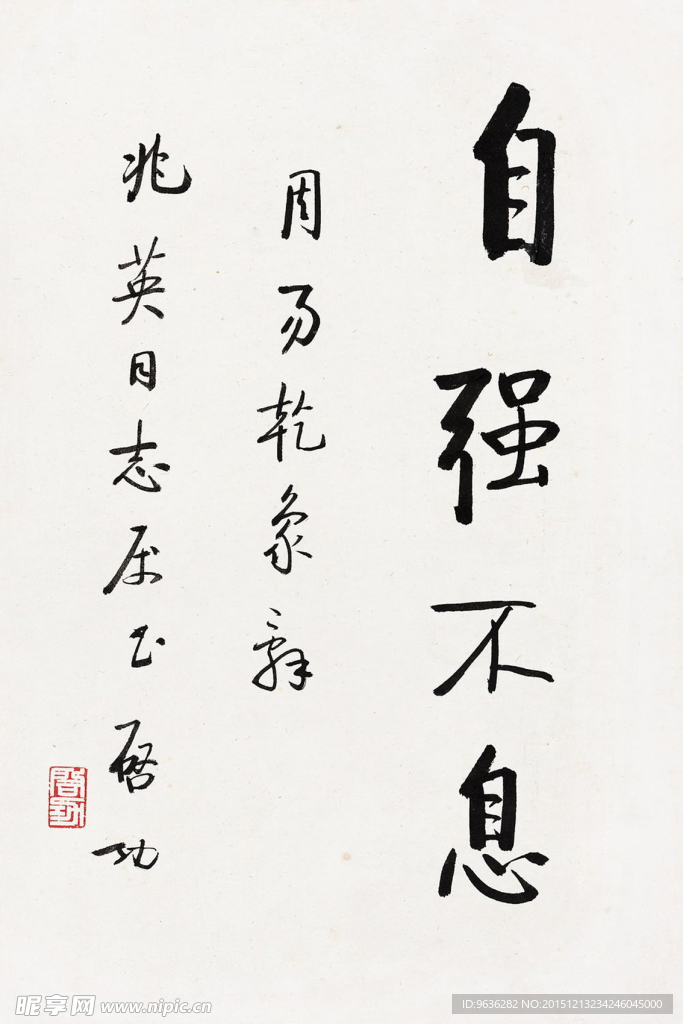 自强不息
周易乾象辞
兆英同志属书 启功
启功
昵享网 www.nipic.cn
ID:9636282 NO:20151213234246045000